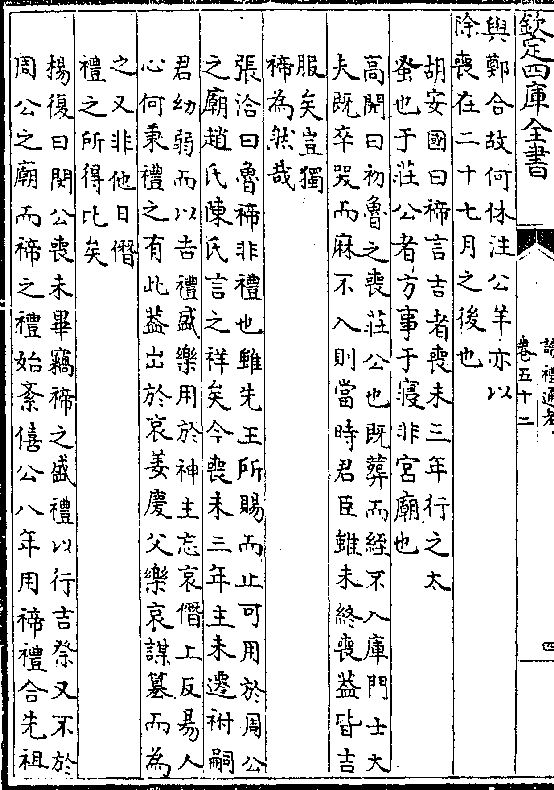 欽定四庫全書
讀禮通考
卷五十二
四
與鄭合故何休注公羊亦以
除喪在二十七月之後也
胡安國曰禘言吉者喪未三年行之太
蚤也于莊公者方事于寢非宮廟也
高閌曰初魯之喪莊公也既葬而絰不入庫門士大
夫既卒哭而麻不入則當時君臣雖未終喪葢皆吉
服矣豈獨
禘為然哉
張洽曰魯禘非禮也雖先王所賜而止可用於周公
之廟趙氏陳氏言之祥矣今喪未三年主未遷祔嗣
君幼弱而以吉禮盛樂用於神主忘哀僭上反易人
心何秉禮之有此葢出於哀姜慶父樂哀謀簒而為
之又非他日僭
禮之所得比矣
楊復曰閔公喪未畢竊禘之盛禮以行吉祭又不於
周公之廟而禘之禮始紊僖公八年用禘禮合先祖